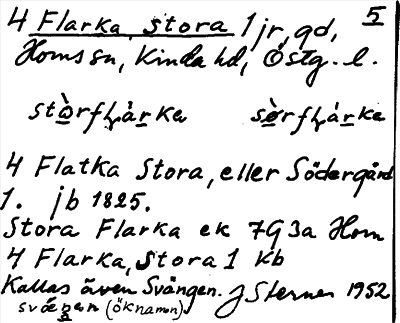 4 Flarka, Stora 1 jr, gd, 5
Horns sn, Kinda hd, Östg. l.
stòrfḷàrka sòrfḷárka
4 Flatka Stora, eller Södergård
1. jb 1825.
Stora Flarka ek 7G 3a Horn
4 Flarka, Stora 1 kb
Kallas även Svängen. J Sterner 1952
svǽŋen (öknamn)